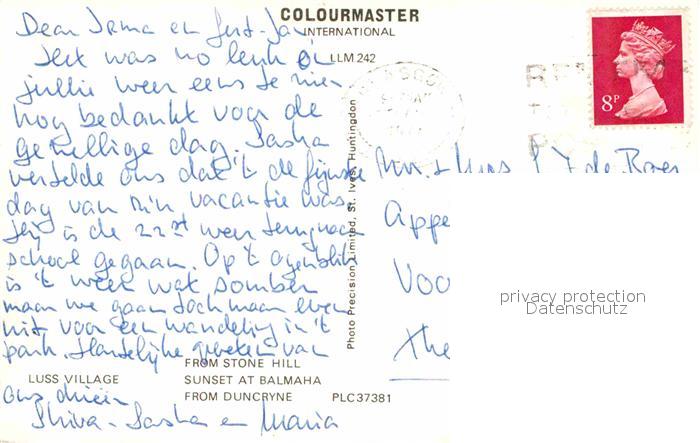 COLOURMASTER
INTERNATIONAL
LLM 242
Dear Irma en Gert-Jan
Het was zo leuk om
jullie weer eens te zien
nog bedankt voor de
gezellige dag. Sasha
vertelde ons dat 't de fijnste
dag van z'n vacantie was
Hij is de 22st weer terug naar
school gegaan. Op 't ogenblik
is 't weer wat somber
maar we gaan toch maar even
uit voor een wandeling in 't
park. Hartelijke groeten van
ons drieën
Shiva - Sasha en Maria
8P
Mr. & Mrs
Appe
Voo
The
Photo Precision Limited, St. Ives, Huntingdon
privacy protection
Datenschutz
FROM STONE HILL
LUSS VILLAGE SUNSET AT BALMAHA
FROM DUNCRYNE PLC37381